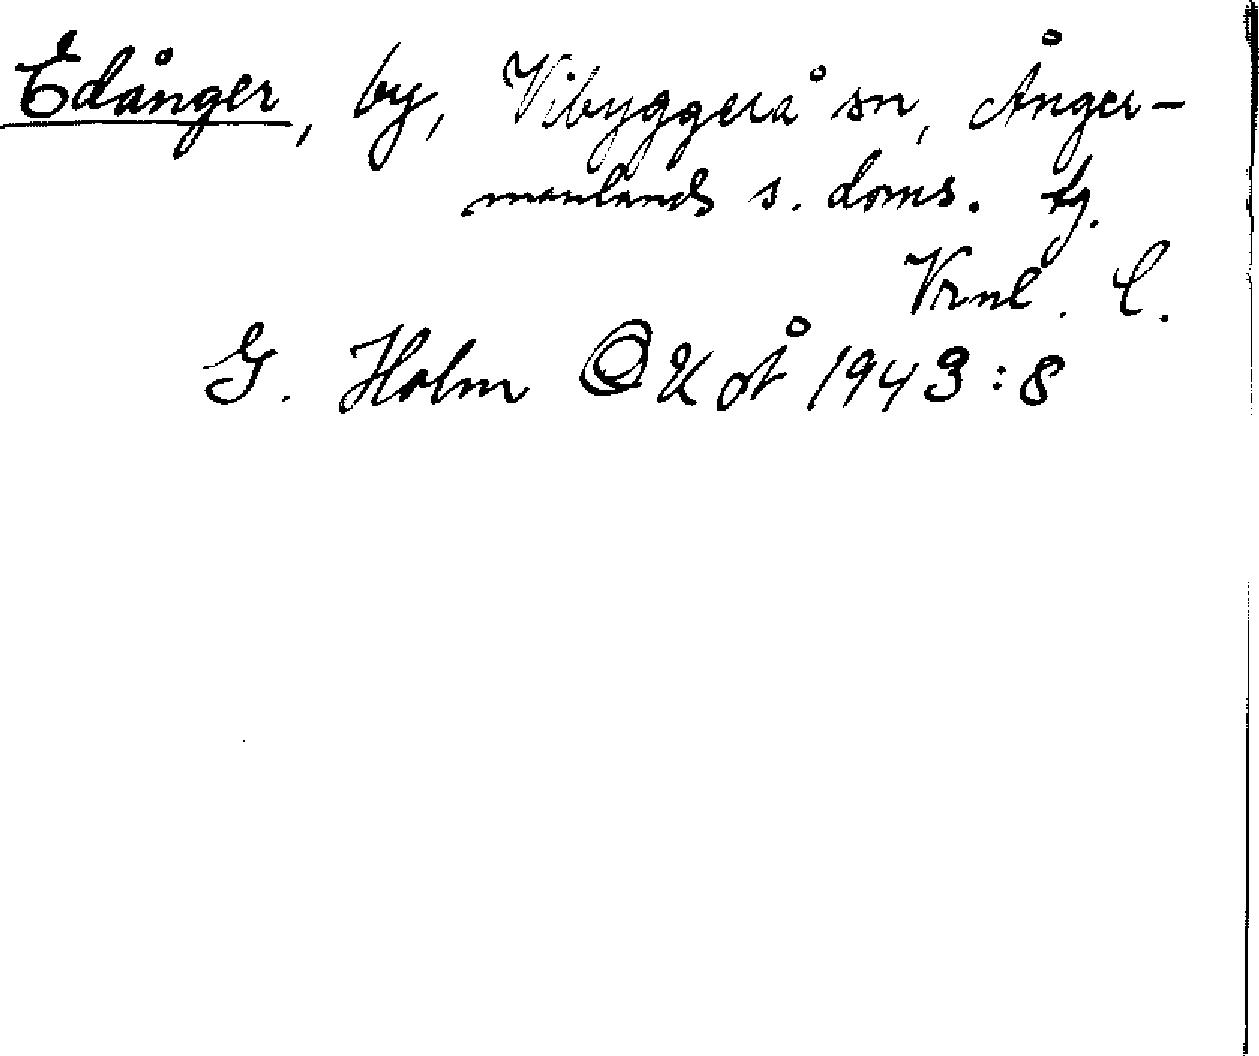 Edånger, by, Vibyggerå sn, Ånger-
manlands s. doms. tg.
Vrnl. C.
G. Holm OKot Å 1943:8